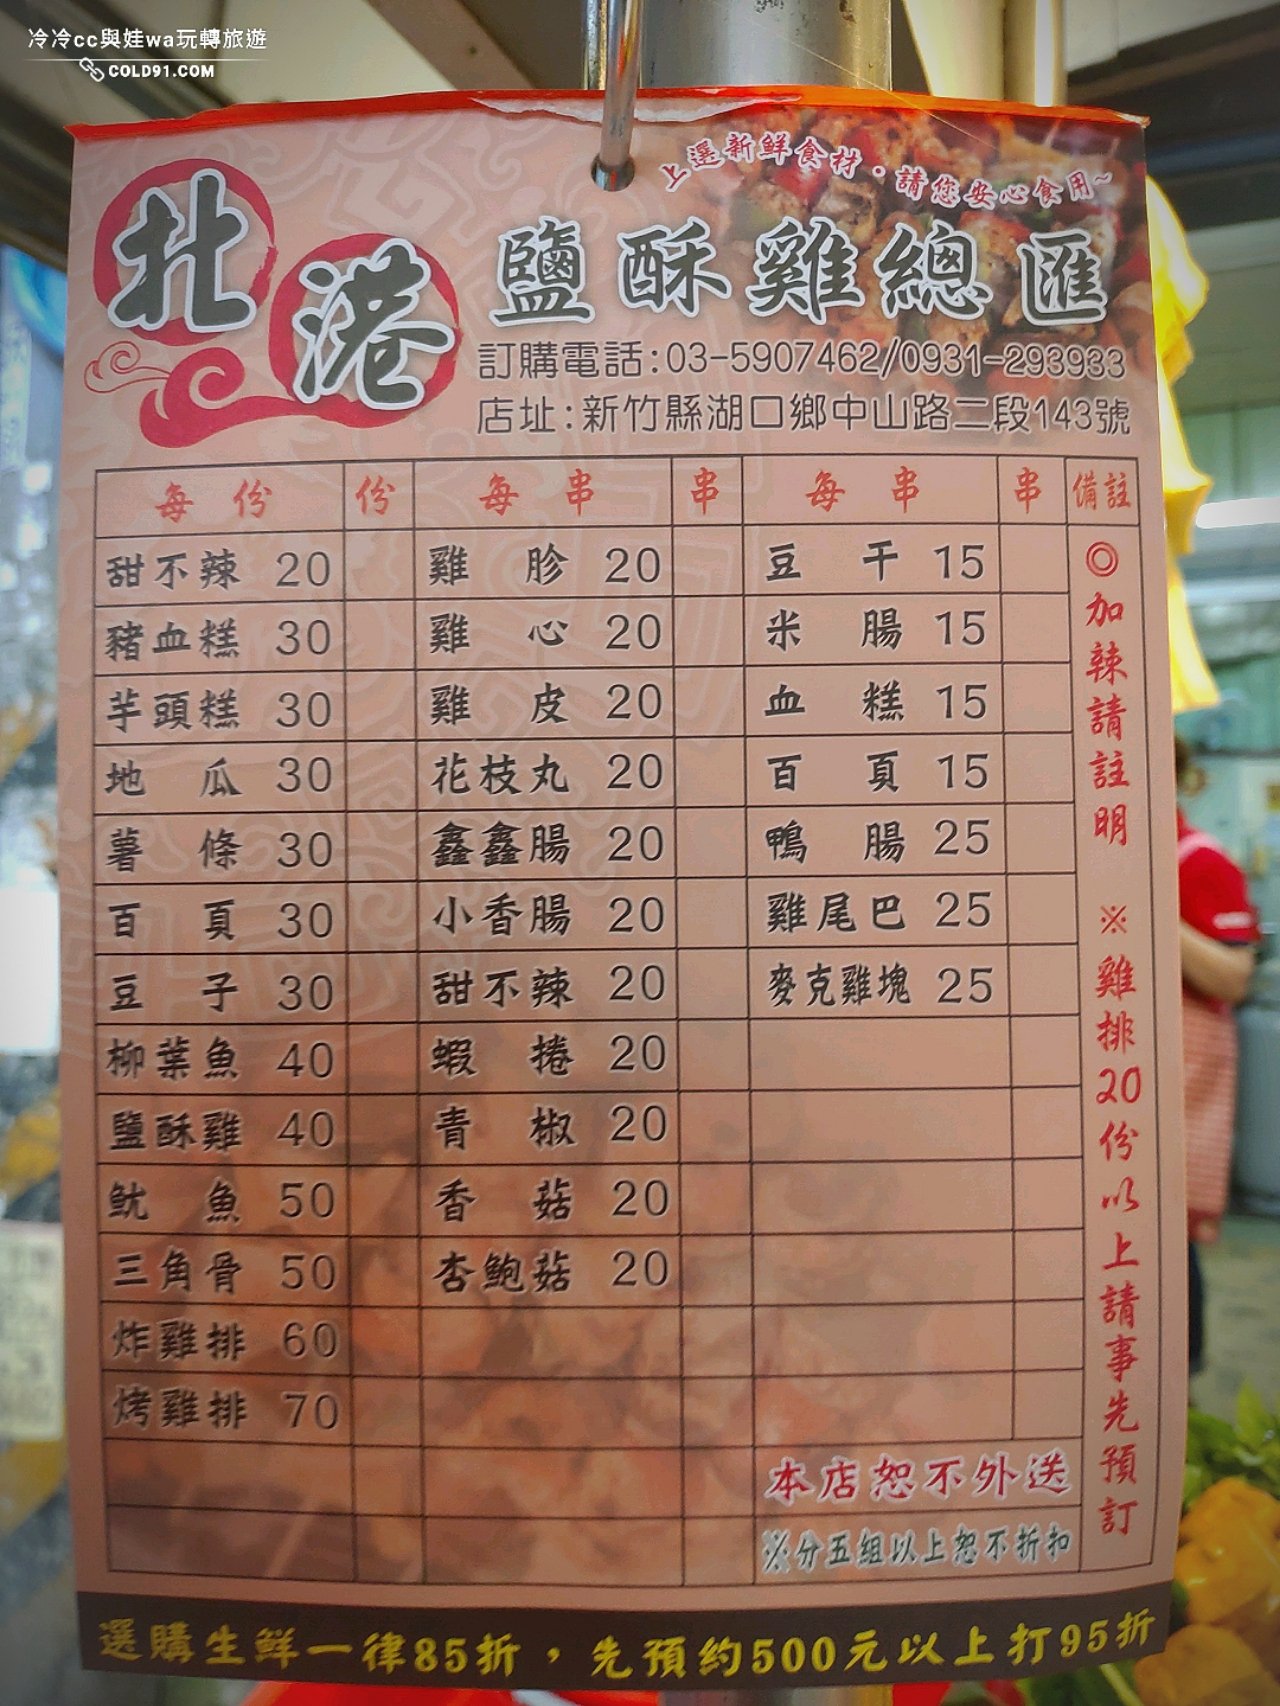 冷冷cc與娃wa玩轉旅遊
COLD91.COM
上選新鮮食材．請您安心食用~
北港
鹽酥雞總匯
訂購電話:03-5907462/0931-293933
店址:新竹縣湖口鄉中山路二段143號
每份 份 每串 串 每串 串 備註
甜不辣 20 雞胗 20 豆干 15
豬血糕 30 雞心 20 米腸 15
芋頭糕 30 雞皮 20 血糕 15
地瓜 30 花枝丸 20 百頁 15
薯條 30 鑫鑫腸 20 鴨腸 25
百頁 30 小香腸 20 雞尾巴 25
豆子 30 甜不辣 20 麥克雞塊 25
柳葉魚 40 蝦捲 20
鹽酥雞 40 青椒 20
魷魚 50 香菇 20
三角骨 50 杏鮑菇 20
炸雞排 60
烤雞排 70
◎加辣請註明 ※雞排20份以上請事先預訂
本店恕不外送
※分五組以上恕不折扣
選購生鮮一律85折，先預約500元以上打95折